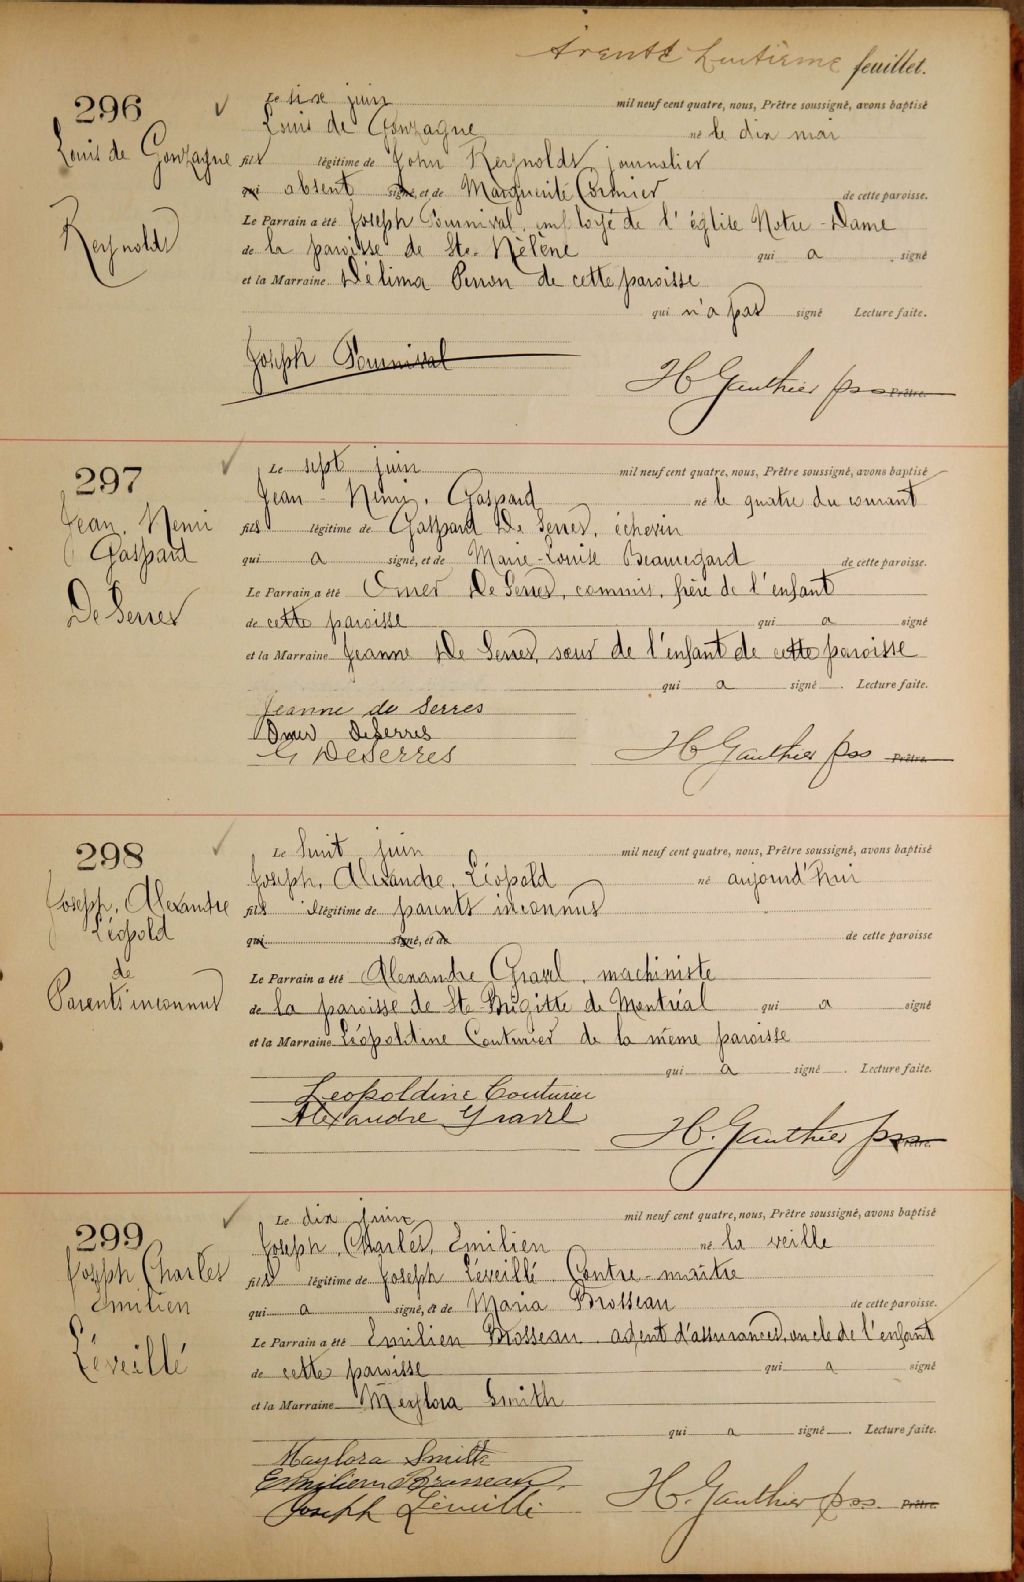 trente huitième feuillet.
296
Louis de Gonzague
Reynolds
Le six juin mil neuf cent quatre, nous, Prêtre soussigné, avons baptisé
Louis de Gonzague né le dix mai
fils légitime de John Reynolds, journalier
qui absent signé, et de Marguerite Cormier de cette paroisse.
Le Parrain a été Joseph Pournival, employé de l'église Notre-Dame
de la paroisse de Ste-Hélène qui a signé
et la Marraine Délima Perron de cette paroisse
qui n'a pas signé Lecture faite.
Joseph Pournival
H Gauthier pss Prêtre.
297
Jean, Henri
Gaspard
De Serres
Le sept juin mil neuf cent quatre, nous, Prêtre soussigné, avons baptisé
Jean-Henri, Gaspard né le quatre du courant
fils légitime de Gaspard De Serres, échevin
qui a signé, et de Marie-Louise Beauregard de cette paroisse.
Le Parrain a été Omer De Serres, commis, frère de l'enfant
de cette paroisse qui a signé
et la Marraine Jeanne De Serres, sœur de l'enfant de cette paroisse
qui a signé Lecture faite.
Jeanne de Serres
Omer DeSerres
G DeSerres
H Gauthier pss Prêtre.
298
Joseph, Alexandre
Léopold
de
Parents inconnus
Le huit juin mil neuf cent quatre, nous, Prêtre soussigné, avons baptisé
Joseph, Alexandre, Léopold né aujourd'hui
fils illégitime de parents inconnus
qui signé, et de de cette paroisse
Le Parrain a été Alexandre Gravel, machiniste
de la paroisse de Ste Brigitte de Montréal qui a signé
et la Marraine Léopoldine Couturier de la même paroisse
qui a signé Lecture faite.
Leopoldine Couturier
Alexandre Gravel
H. Gauthier pss Prêtre.
299
Joseph Charles
Emilien
Léveillé
Le dix juin mil neuf cent quatre, nous, Prêtre soussigné, avons baptisé
Joseph, Charles, Emilien né la veille
fils légitime de Joseph Léveillé Contre-maître
qui a signé, et de Maria Brosseau de cette paroisse.
Le Parrain a été Emilien Brosseau agent d'assurances, oncle de l'enfant
de cette paroisse qui a signé
et la Marraine Meylora Smith
qui a signé Lecture faite.
Maylora Smith
Emilien Brosseau.
Joseph Léveillé
H. Gauthier pss. Prêtre